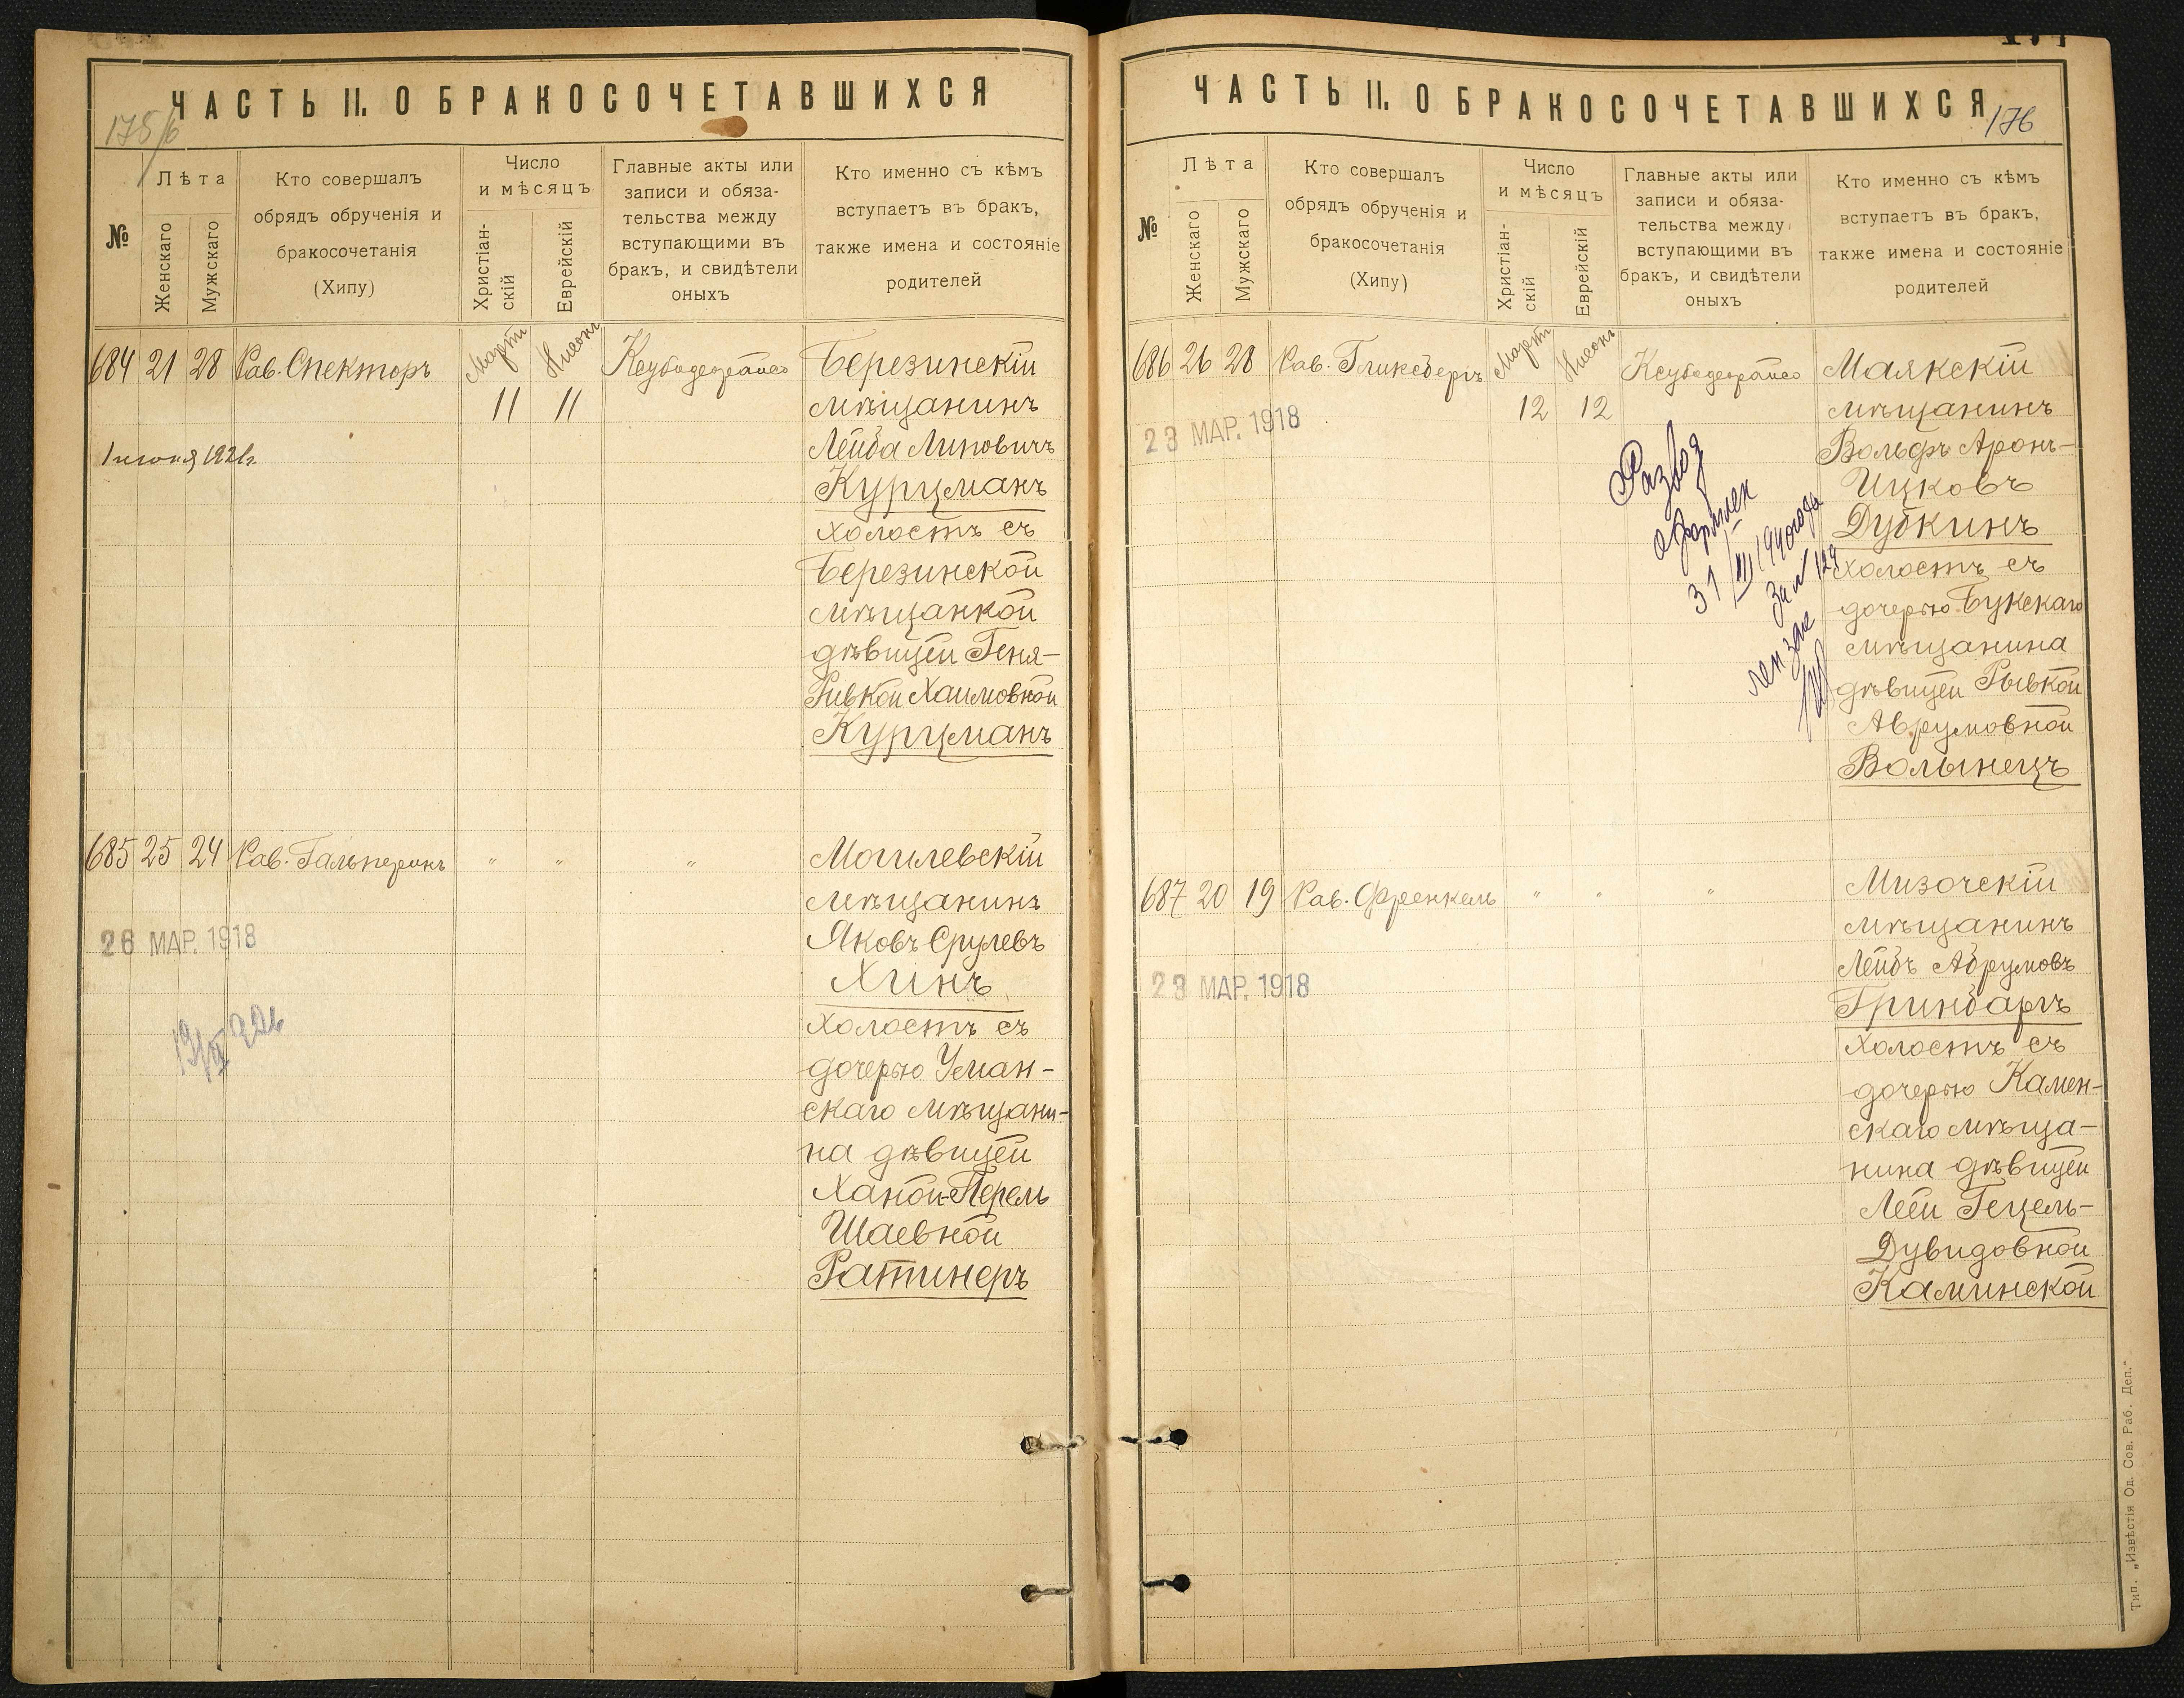 ЧАСТЬ II. О БРАКОСОЧЕТАВШИХСЯ
175/6
№
Лѣта
Женскаго
Мужскаго
Кто совершалъ
обрядъ обрученія и
бракосочетанія
(Хипу)
Число
и мѣсяцъ
Христіан-
скій
Еврейскій
Главные акты или
записи и обяза-
тельства между
вступающими въ
бракъ, и свидѣтели
оныхъ
Кто именно съ кѣмъ
вступаетъ въ бракъ,
также имена и состояніе
родителей
684 21 28 Рав. Спекторъ
Мартъ Нисонъ
11 11
Березинскій
мѣщанинъ
Лейба Липовичъ
Курцманъ
холостъ съ
Березинской
мѣщанкой
дѣвицей Геня-
Ривкой Хаимовной
Курцманъ
1921г.
685 25 24 Рав. Гальперинъ " " "
26 МАР. 1918
Могилевскій
мѣщанинъ
Яковъ Срулевъ
Хинъ
холостъ съ
дочерью Уман-
скаго мѣщани-
на дѣвицей
Ханой-Перель
Шаевной
Ратинеръ
ЧАСТЬ II. О БРАКОСОЧЕТАВШИХСЯ
176
№
Лѣта
Женскаго
Мужскаго
Кто совершалъ
обрядъ обрученія и
бракосочетанія
(Хипу)
Число
и мѣсяцъ
Христіан-
скій
Еврейскій
Главные акты или
записи и обяза-
тельства между
вступающими въ
бракъ, и свидѣтели
оныхъ
Кто именно съ кѣмъ
вступаетъ въ бракъ,
также имена и состояніе
родителей
686 26 28 Рав. Гликсбергъ
Мартъ Нисонъ
12 12
23 МАР. 1918
Развод
оформлен
31/III 1940 года
за № 129
Маякскій
мѣщанинъ
Вольфъ Аронъ-
Ицковъ
Дубкинъ
холостъ съ
дочерью Букскаго
мѣщанина
дѣвицей Рывкой
Аврумовной
Волынецъ
687 20 19 Рав. Френкель " " "
23 МАР. 1918
Мизочскій
мѣщанинъ
Лейбъ Абрумовъ
Гринбаргъ
холостъ съ
дочерью Камен-
скаго мѣща-
нина дѣвицей
Леей Гецель-
Дувидовной
Каминской
Тип. „Извѣстія Од. Сов. Раб. Деп."